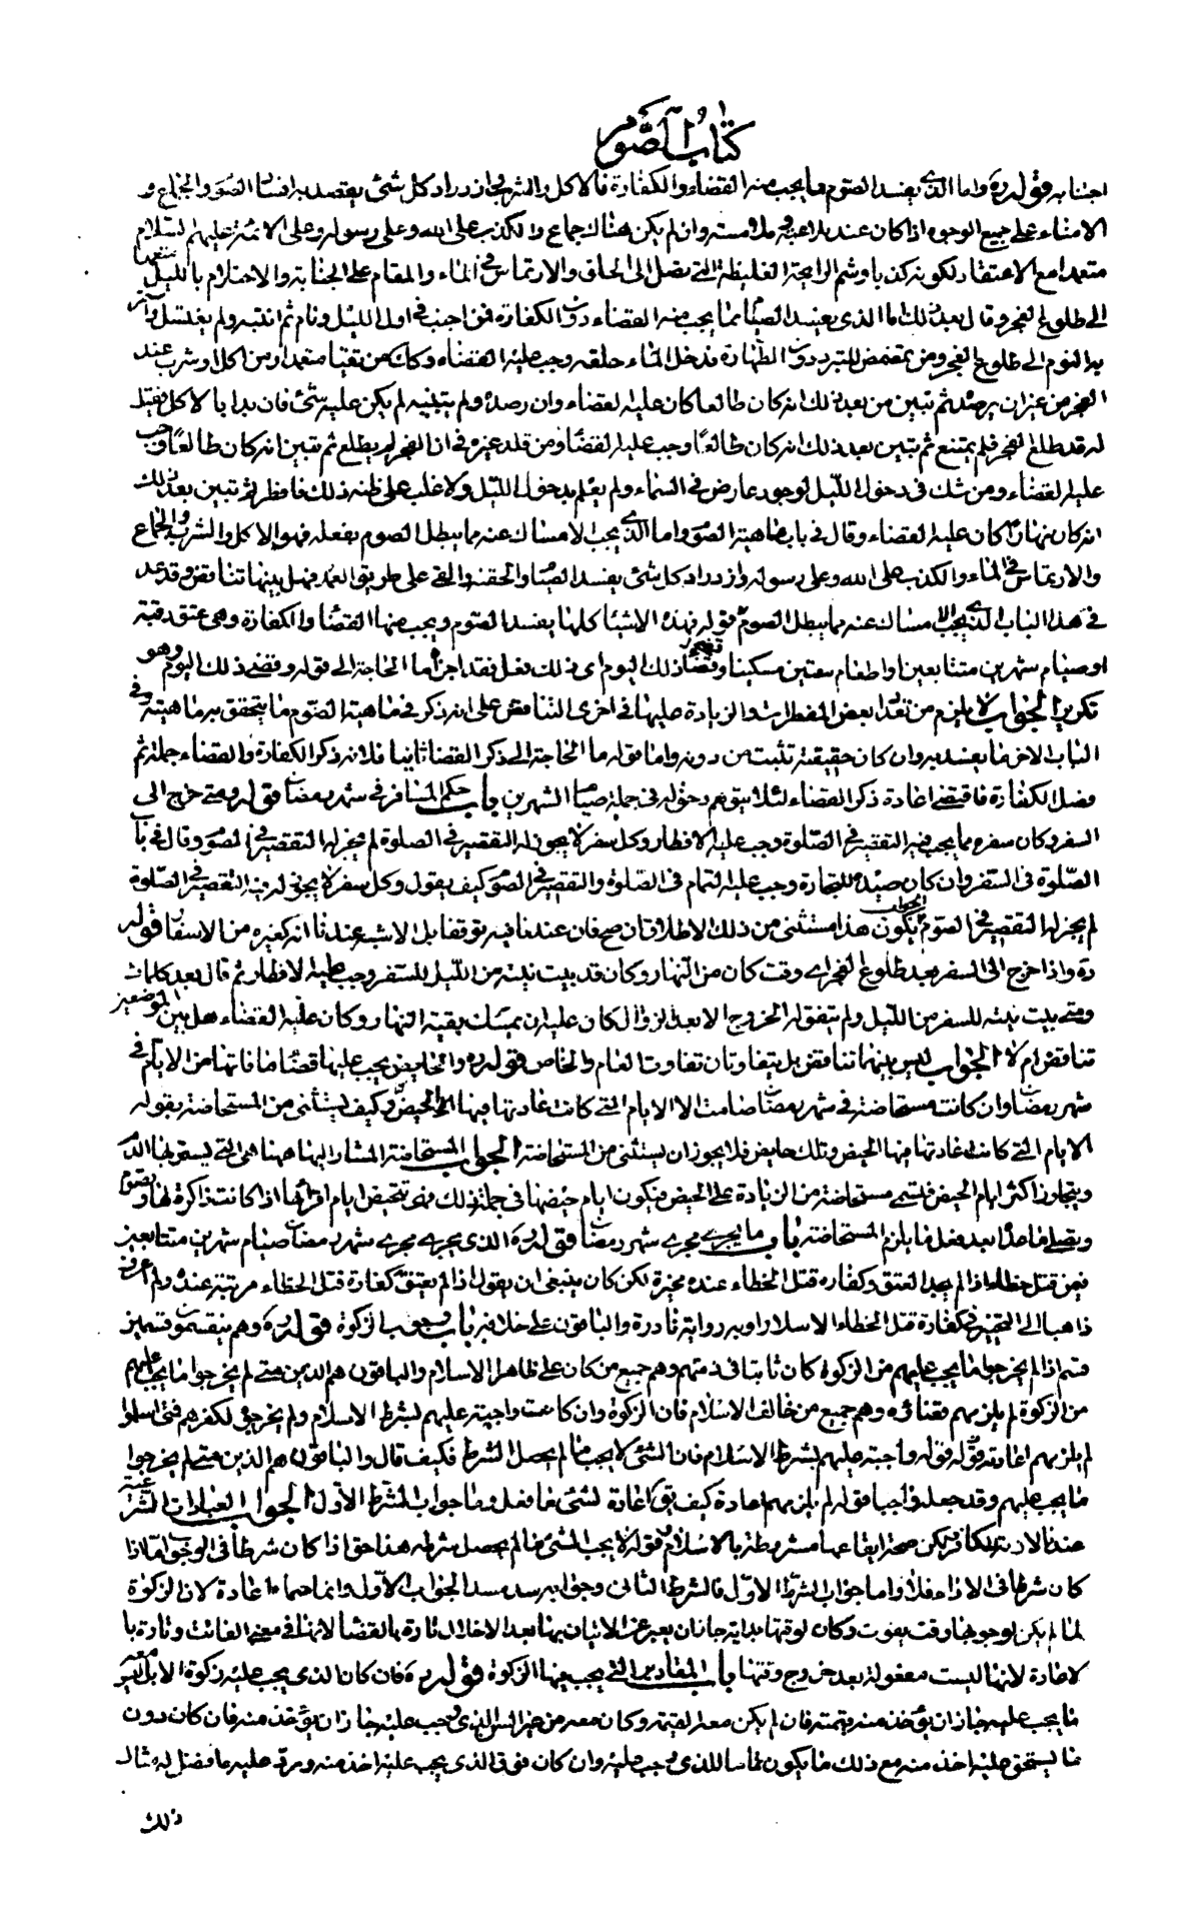 كتاب الصوم
اجنابه قوله ره واما الذي يفسد الصوم مما يجب منه القضاء والكفارة فالاكل والشرب والجماع وازدراد كل شئ يقصد به افساد الصوم والجماع و
الامناء على جميع الوجوه اذا كان عند ملاعبة وملامسة وان لم يكن هناك جماع والكذب على الله وعلى رسوله وعلى الائمة عليهم السلام
متعمدا مع الاعتقاد لكونه كذبا وشم الرايحة الغليظة التي تصل الى الحلق والارتماس في الماء والمقام على الجنابة والاحتلام بالليل متعمدا
الى طلوع الفجر وقال بعد ذلك اما الذي يفسد الصيام مما يجب منه القضاء دون الكفارة فمن اجنب في اول الليل ونام ثم انتبه ولم يغتسل واخر
به النوم الى طلوع الفجر ومن تمضمض للتبرد دون الطهارة فدخل الماء حلقه وجب عليه القضاء وكذلك من تقيا متعمدا ومن اكل او شرب عند
الفجر من غير ان يرصده ثم تبين من بعد ذلك انه كان طالعا كان عليه القضاء وان رصده ولم يتبينه لم يكن عليه شئ فان بدا بالاكل فقيل
له قد طلع الفجر فلم يمتنع ثم تبين بعد ذلك انه كان طالعا وجب عليه القضاء ومن قلد غيره في ان الفجر لم يطلع ثم تبين انه كان طالعا وجب
عليه القضاء ومن شك في دخول الليل لوجود عارض في السماء ولم يعلم بدخول الليل ولا غلب على ظنه ذلك فافطر ثم تبين بعد ذلك
انه كان نهارا كان عليه القضاء وقال في باب ماهية الصوم واما الذي يجب الامساك عنه مما يبطل الصوم بفعله فهو الاكل والشرب والجماع
والارتماس في الماء والكذب على الله وعلى رسوله وازدراد كل شئ يفسد الصيام والحقنة والقئ على طريق العمد فهل بينهما تناقض وقد عد
في هذا الباب الذي يجب الامساك عنه مما يبطل الصوم قوله فهذه الاشياء كلها يفسد الصوم ويجب منها القضاء والكفارة وهي عتق رقبة
او صيام شهرين متتابعين او اطعام ستين مسكينا وقضاء ذلك اليوم اي ذلك فعل فقد اجزاه ما الحاجة الى قوله وقضى ذلك اليوم وهو
تكرير الجواب لا يلزم من تعداد بعض المفطرات والزيادة عليها في اخرى التناقض على انه ذكر في ماهية الصوم ما يتحقق به ماهيته وفي
الباب الاخر ما يفسد به وان كان حقيقته تثبت من دونه واما قوله ما الحاجة الى ذكر القضاء ثانيا فلانه ذكر الكفارة والقضاء جملة ثم
فصل الكفارة فاقتضى اعادة ذكر القضاء لئلا يتوهم دخوله في جملة صيام الشهرين باب حكم المسافر في شهر رمضان قوله ومتى خرج الى
السفر وكان سفره مما يجب فيه التقصير في الصلوة وجب عليه الافطار وكل سفر لا يجوز له التقصير في الصلوة لم يجز له التقصير في الصوم وقال في باب
الصلوة في السفر وان كان صيده للتجارة وجب عليه التمام في الصلوة والتقصير في الصوم كيف يقول وكل سفر لا يجوز له فيه التقصير في الصلوة
لم يجز له التقصير في الصوم الجواب يكون هذا مستثنى من ذلك الاطلاق ان صح فان عندنا فيه توقفا بل الاشبه عندنا انه كغيره من الاسفار قوله
ره واذا خرج الى السفر بعد طلوع الفجر اي وقت كان من النهار وكان قد بيت نيته من الليل للسفر وجب عليه الافطار ثم قال بعد كلمات
ومتى بيت نيته للسفر من الليل ولم يتفق له الخروج الا بعد الزوال كان عليه ان يمسك بقية النهار وكان عليه القضاء هل بين الموضعين
تناقض ام لا الجواب ليس بينهما تناقض بل يتفاوتان تفاوت العام والخاص قوله ره والحايض يجب عليها قضاء ما فاتها من الايام في
شهر رمضان وان كانت مستحاضة في شهر رمضان صامت الا الايام التي كانت عادتها فيها الحيض وكيف يستثنى من المستحاضة بقوله
الا الايام التي كانت عادتها فيها الحيض وتلك حايض فلا يجوز ان يستثنى من المستحاضة الجواب المستحاضة المشار اليها ههنا هي التي يستمر بها الدم
ويتجاوز اكثر ايام الحيض فتسمى مستحاضة من الزيادة على الحيض ويكون ايام حيضها في جملة ذلك فهي تتحيض ايام اقرائها اذا كانت ذاكرة لها وتصوم
وتصلي ما عدا بعد فعل ما يلزم المستحاضة باب ما يجري مجرى شهر رمضان قوله ره الذي يجري مجرى شهر رمضان صيام شهرين متتابعين
فيمن قتل خطاء اذا لم يجد العتق وكفاره قتل الخطاء عنده مخيرة لكن كان ينبغي ان يقول اذا لم يعتق كفارة قتل الخطاء مرتبة عنده ولم اعرف
ذاهبا الى التخيير في كفارة قتل الخطاء الا سلار وبه رواية نادرة والباقون على خلافه باب وجوب الزكوة قوله ره وهم ينقسمون قسمين
قسم اذا لم يخرجوا ما يجب عليهم من الزكوة كان ثابتا في ذمتهم وهم جميع من كان على ظاهر الاسلام والباقون هم الذين متى لم يخرجوا ما يجب عليهم
من الزكوة لم يلزمهم قضاؤه وهم جميع من خالف الاسلام فان الزكوة وان كانت واجبة عليهم بشرط الاسلام ولم يخرجوها لكفرهم فمتى اسلموا
لم يلزمهم اعادته وقوله قوله واجبة عليهم بشرط الاسلام فان الشئ لا يجب ما لم يحصل الشرط فكيف قال والباقون هم الذين متى لم يخرجوا
ما يجب عليهم وقد جعله واجبا قوله لم يلزمهم اعادة كيف يقع اعادة لشئ ما فعل وما جواب الشرط الاول الجواب العبادات الشرعية
عندنا لازمة للكافر لكن صحة ايقاعها مشروطة بالاسلام قوله لا يجب الشئ ما لم يحصل شرطه هذا حق اذا كان شرطا في الوجوب اما اذا
كان شرطا في الاداء فلا واما جواب الشرط الاول فالشرط الثاني وجوابه سد مسد الجواب الاول وانما سماها اعادة لان الزكوة
لما لم يكن لوجوبها وقت يفوت وكان لوقتها بداية جاز ان يعبر عن الاتيان بها بعد الاخلال تارة بالقضاء لانها في معنى الفائت وتارة با
لاعادة لانها ليست مفعولة بعد خروج وقتها باب المقادير التي يجب فيها الزكوة قوله ره فان كان الذي يجب عليه زكوة الابل ليس معه
ما يجب عليه جاز ان يؤخذ منه قيمته فان لم يكن معه القيمة وكان معه من غير السن الذي وجب عليه جاز ان يؤخذ منه فان كان دون
ما يستحق عليه اخذ منه مع ذلك ما يكون تماما للذي وجب عليه وان كان فوق الذي يجب عليه اخذ منه ورد عليه ما فضل له مثال
ذلك